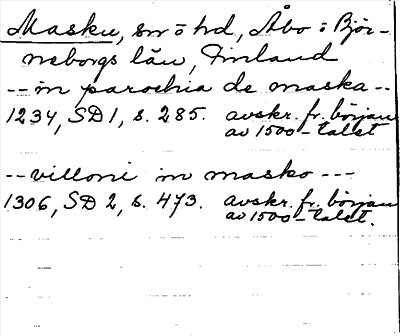 Masku, sn o hd, Åbo o Björ-
neborgs län, Finland
--in parochia de maska--
1234, SD 1, s. 285. avskr. fr. början
av 1500-talet
--villoni in masko---
1306, SD 2, s. 473. avskr. fr. början
av 1500-talet.